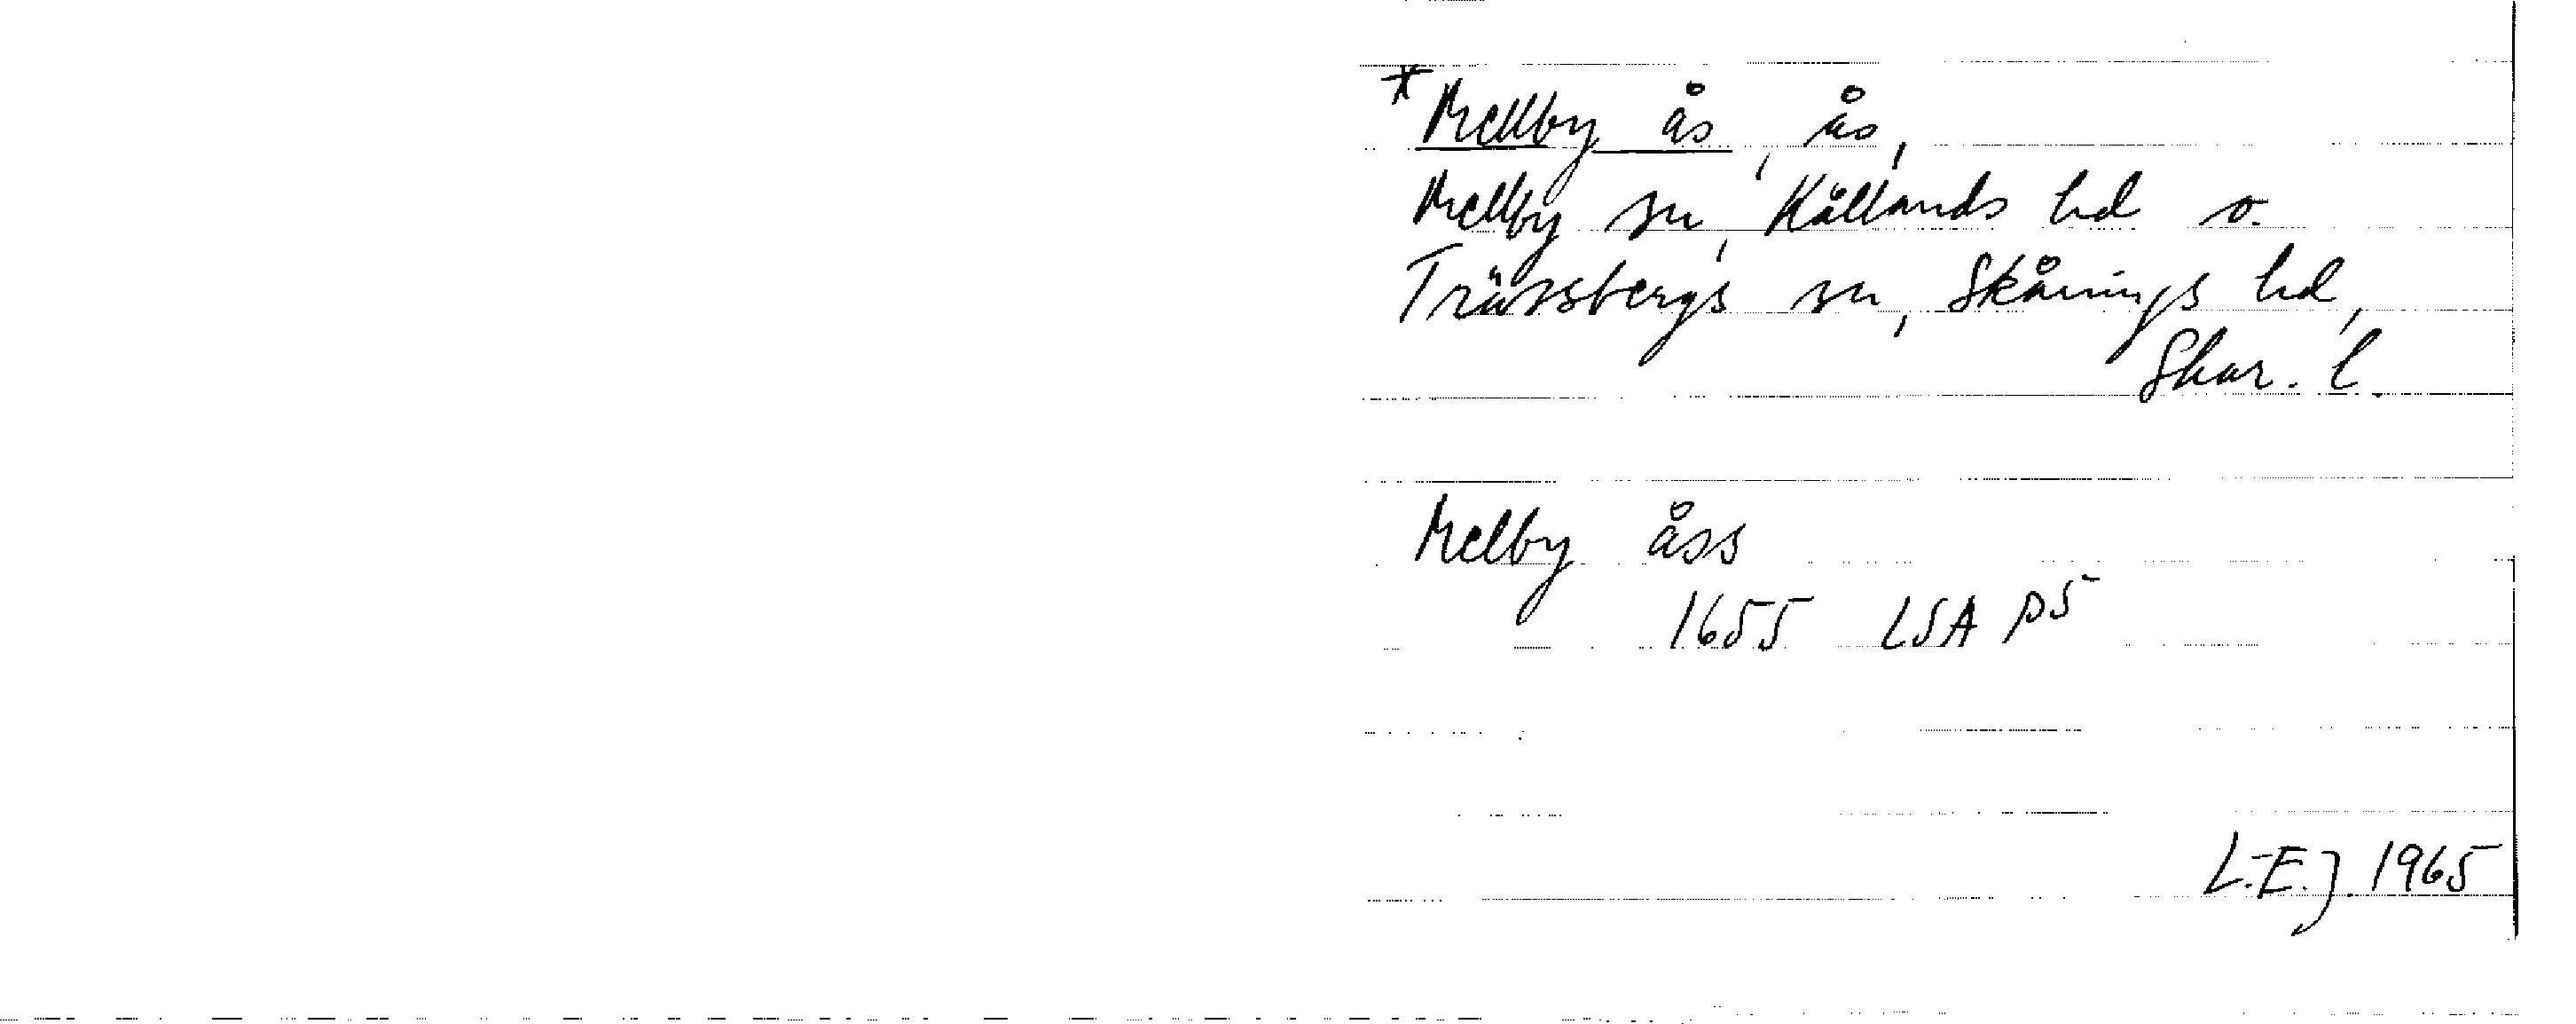 * Mellby ås, ås,
Mellby sn, Kållands hd o.
Trässbergs sn, Skånings hd,
Skar. l.
Melby åss
1655 LSA P5
L.E.J. 1965